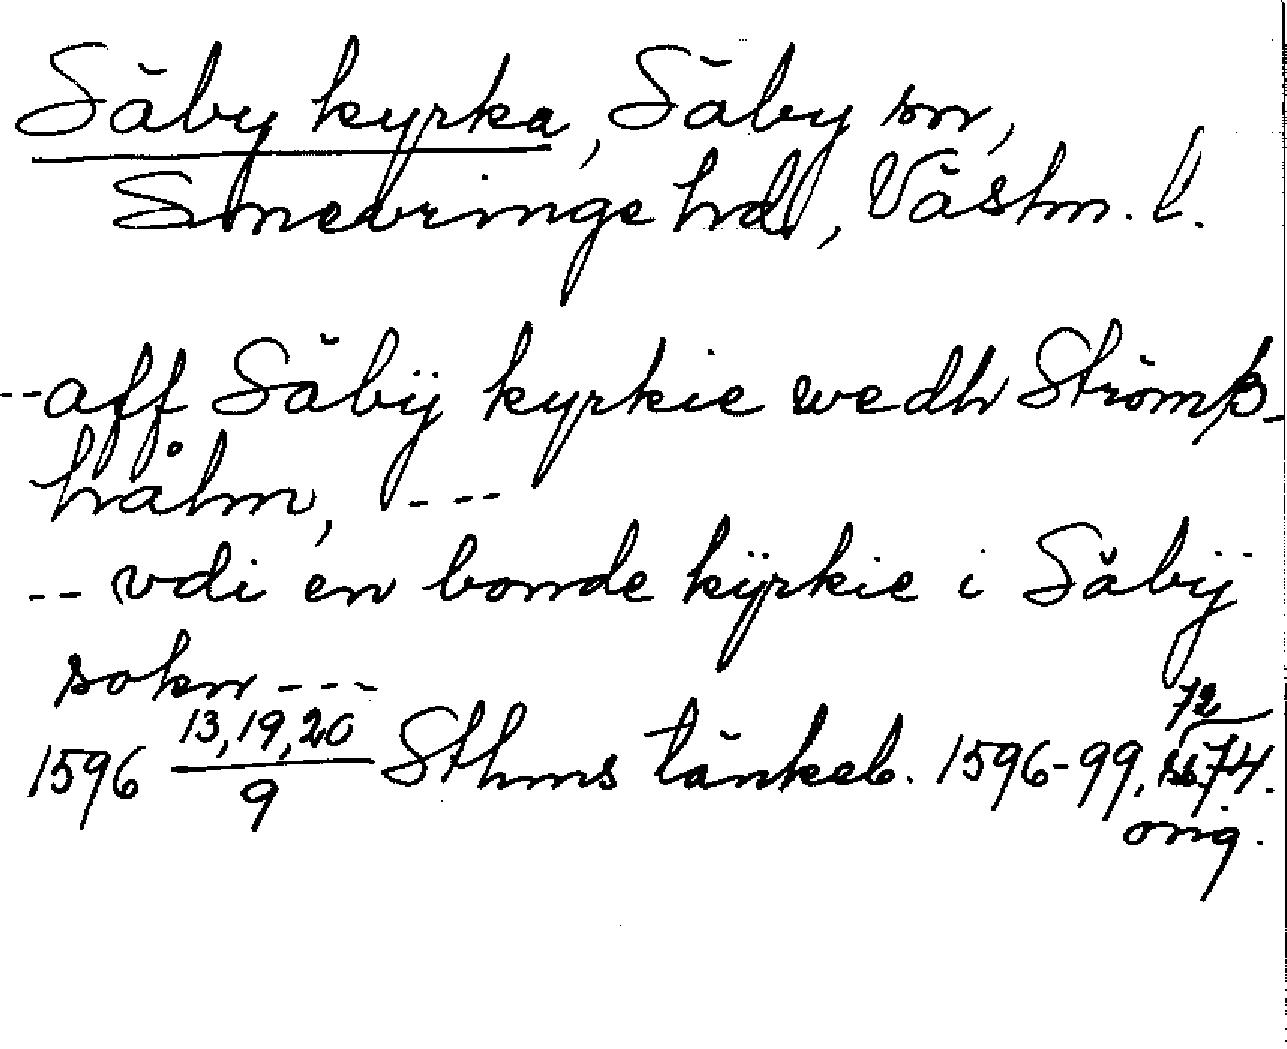 Säby kyrka, Säby sn,
Snevringe hd, Västm. l.
--aff Säbÿ kyrkie wedh Strömß-
hålm, ---
-- vdi en bonde kÿrkie i Säbÿ
sokn ---
1596 13,19,20/9 Sthms tänkeb. 1596-99, s. 72, 74.
orig.